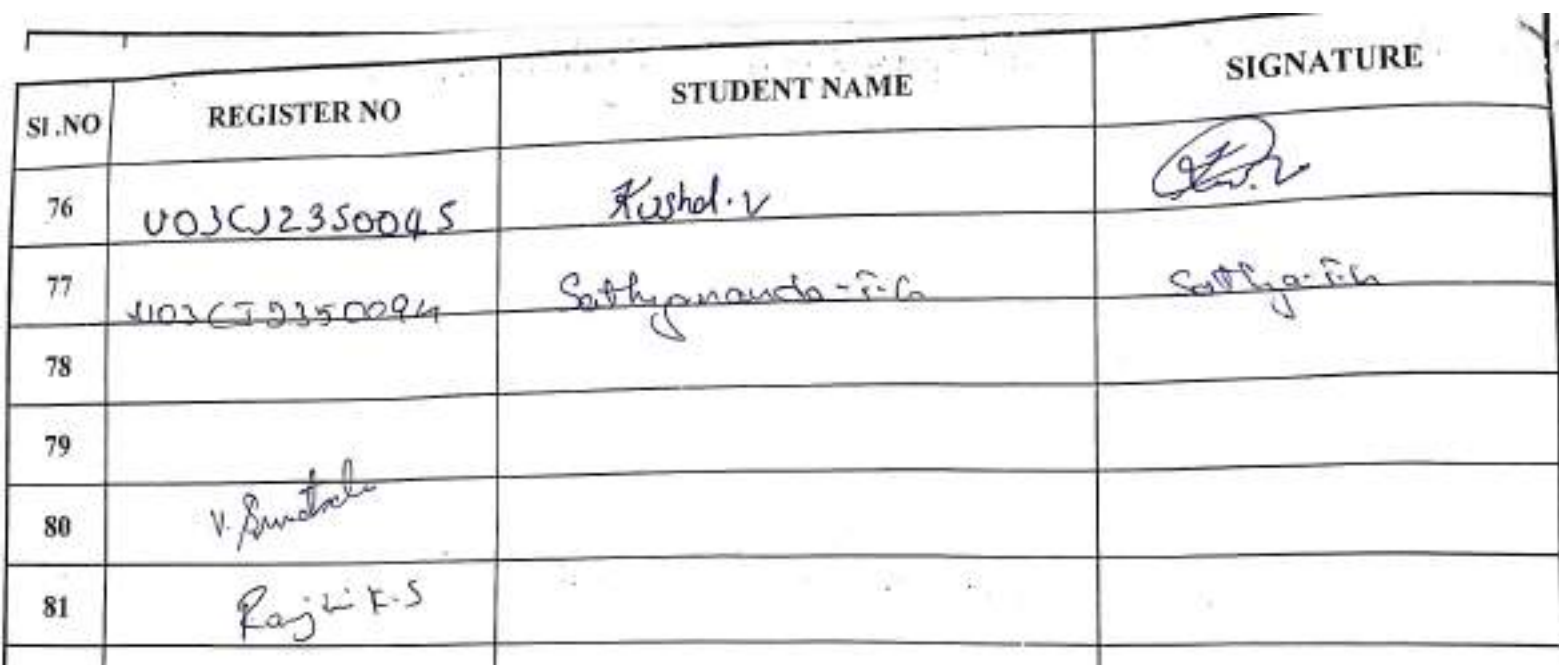 SI.NO REGISTER NO STUDENT NAME SIGNATURE
76 U03CJ23S0045 Kushal.V
77 U03CJ23S0094 Sathyananda-T-G Sathya-T-G
78
79
80 V.
81 K.S